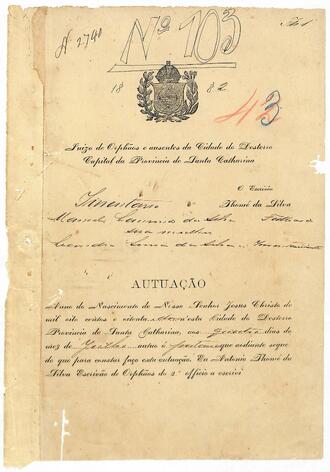 Nº 103
N 2790
18 82
43
Juizo de Orphãos e ausentes da Cidade do Desterro
Capital da Provincia de Santa Catharina
O Escrivão
Thomé da Silva
Inventario
Manoel da Silva
sua mulher
Inventariante
AUTUAÇÃO
Anno do Nascimento de Nosso Senhor Jesus Christo de
mil oito centos e oitenta n'esta Cidade do Desterro
Provincia de Santa Catharina, aos dias do
mez de autuo que adiante segue
do que para constar faço esta autuação. Eu Antonio Thomé da
Silva Escrivão de Orphãos do 2º officio a escrevi